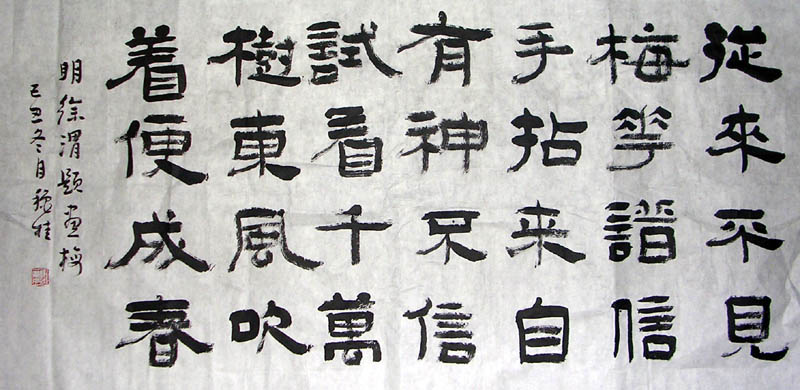 從來不見
梅花譜信
手拈来自
有神不信
試看千萬
樹東風吹
着便成春
明徐渭題畫梅
己丑冬月